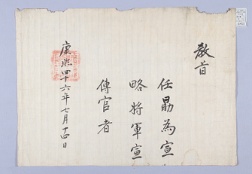 教旨
任勗為宣
略將軍宣
傳官者
康熙四十六年七月 日